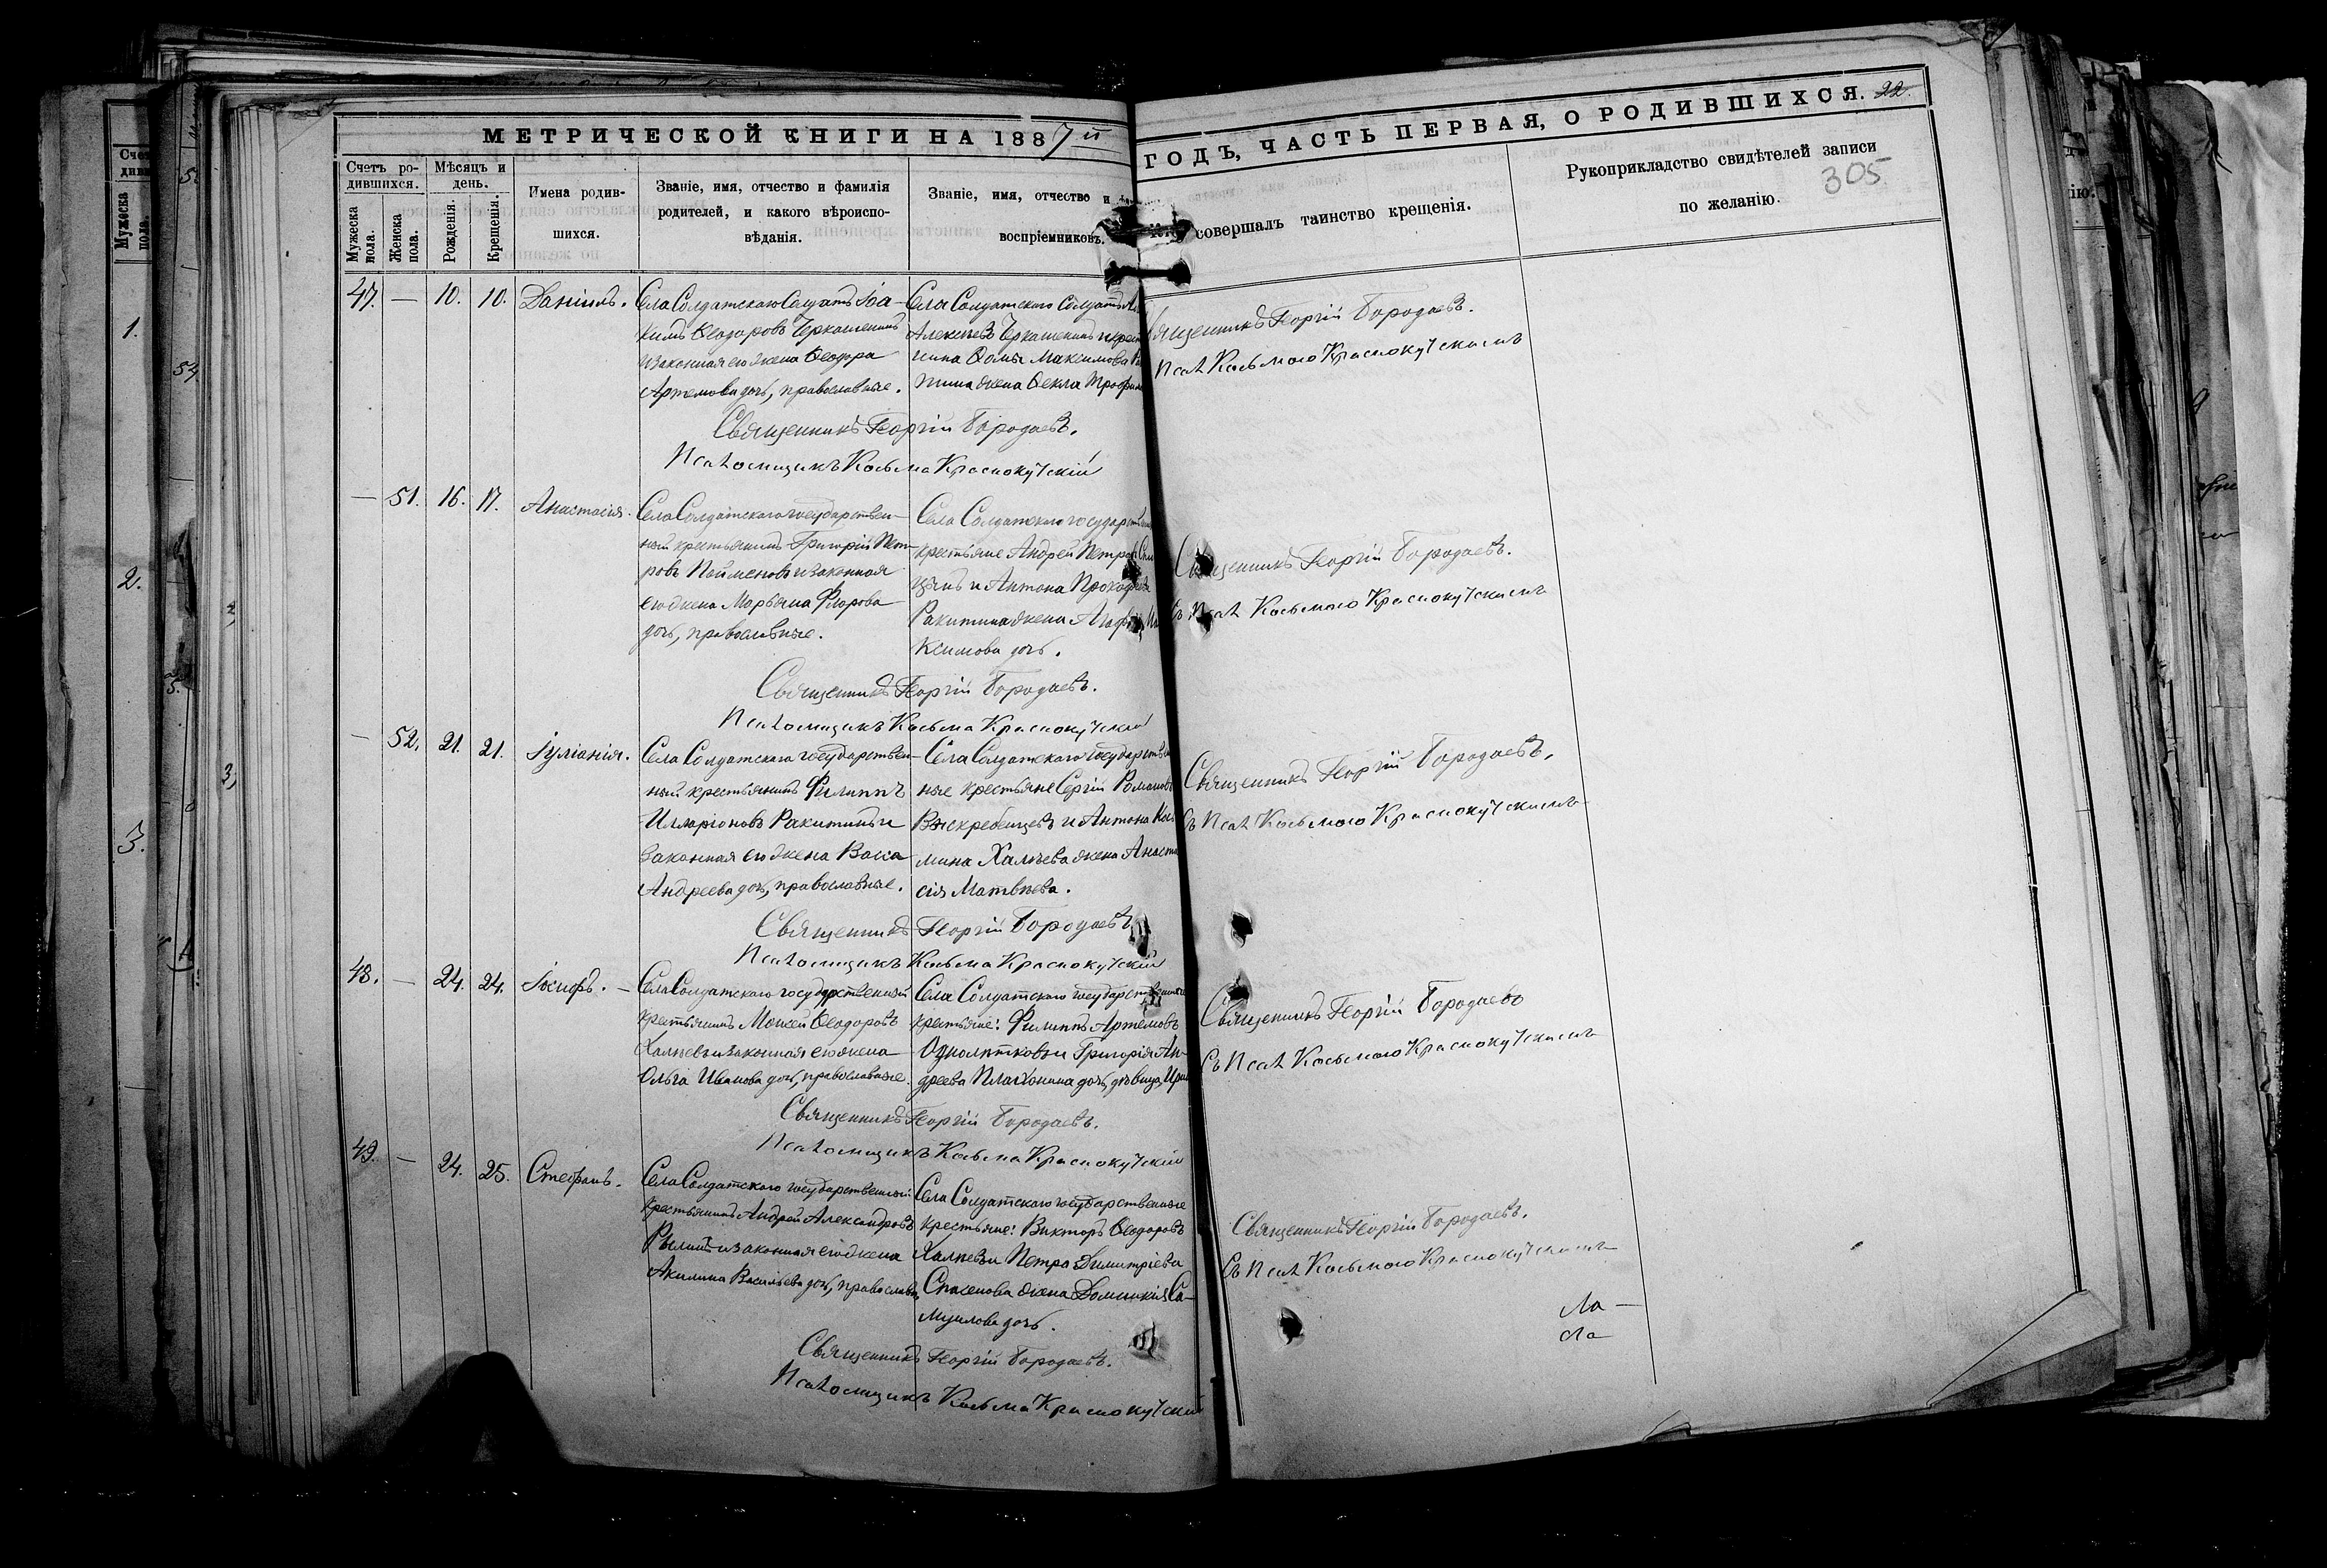 МЕТРИЧЕСКОЙ КНИГИ НА 1887й
ГОДЪ, ЧАСТЬ ПЕРВАЯ, О РОДИВШИХСЯ. 22.
305
Счетъ родившихся.
Мужеска пола.
Женска пола.
Мѣсяцъ и день.
Рожденія.
Крещенія.
Имена родившихся.
Званіе, имя, отчество и фамилія
родителей, и какого вѣроиспо-
вѣданія.
Званіе, имя, отчество и
воспріемниковъ.
совершалъ таинство крещенія.
Рукоприкладство свидѣтелей записи
по желанію.
47. — 10. 10. Даніилъ.
Села Солдатскаго Солдатъ Іоа-
кимъ Ѳеодоровъ Черкашенинъ
и законная его жена Ѳеодора
Артемова дочь, православные.
Села Солдатскаго Солдатъ
Алексѣевъ Черкашенинъ и крест
нина Ѳомы Максимова
жена Ѳекла Трофим
Священникъ Георгій Бородаевъ.
Псал Косьмою Краснокутскимъ
Священникъ Георгій Бородаевъ.
Псаломщикъ Косьма Краснокутскій
— 51. 16. 17. Анастасія.
Села Солдатскаго государствен-
ный крестьянинъ Григорій Пет-
ровъ Пойменовъ и законная
его жена Марѳяна Флорова
дочь, православные.
Села Солдатскаго государствен
крестьяне Андрей Петровъ
и Антона Прокофьева
Ракитина жена Агафія
ксимова дочь.
Священникъ Георгій Бородаевъ.
Съ Псал Косьмою Краснокутскимъ
Священникъ Георгій Бородаевъ.
Псаломщикъ Косьма Краснокутскій
— 52. 21. 21. Іуліанія.
Села Солдатскаго государствен-
ный крестьянинъ Филиппъ
Илларіоновъ Ракитинъ и
законная его жена Васса
Андреева дочь, православные.
Села Солдатскаго государствен
ные крестьяне Сергій Романовъ
Выскребенцевъ и Антона Кось
мина Халѣева жена Анаста
сія Матвѣева.
Священникъ Георгій Бородаевъ.
Съ Псал Косьмою Краснокутскимъ
Священникъ Георгій Бородаевъ
Псаломщикъ Косьма Краснокутскій
48. — 24. 24. Іосифъ. —
Села Солдатскаго государственный
крестьянинъ Моисей Ѳеодоровъ
Халѣевъ и законная его жена
Ольга Иванова дочь, православные.
Села Солдатскаго государственные
крестьяне: Филиппъ Артемовъ
Однолѣтковъ и Григорія Ан-
дреева Платонина дочь, дѣвица, Ири
Священникъ Георгій Бородаевъ
Съ Псал Косьмою Краснокутскимъ
Священникъ Георгій Бородаевъ.
Псаломщикъ Косьма Краснокутскій
49. — 24. 25. Стефанъ.
Села Солдатскаго государственный
крестьянинъ Андрей Александровъ
и законная его жена
Акилина Васильева дочь, православн.
Села Солдатскаго государственные
крестьяне: Викторъ Ѳеодоровъ
Халѣевъ и Петра Димитріева
Спасенова жена Домникія Са-
муилова дочь.
Священникъ Георгій Бородаевъ.
Съ Псал Косьмою Краснокутскимъ
Священникъ Георгій Бородаевъ.
Псаломщикъ Косьма Краснокутскій
ла —
ла —
1.
2.
3.